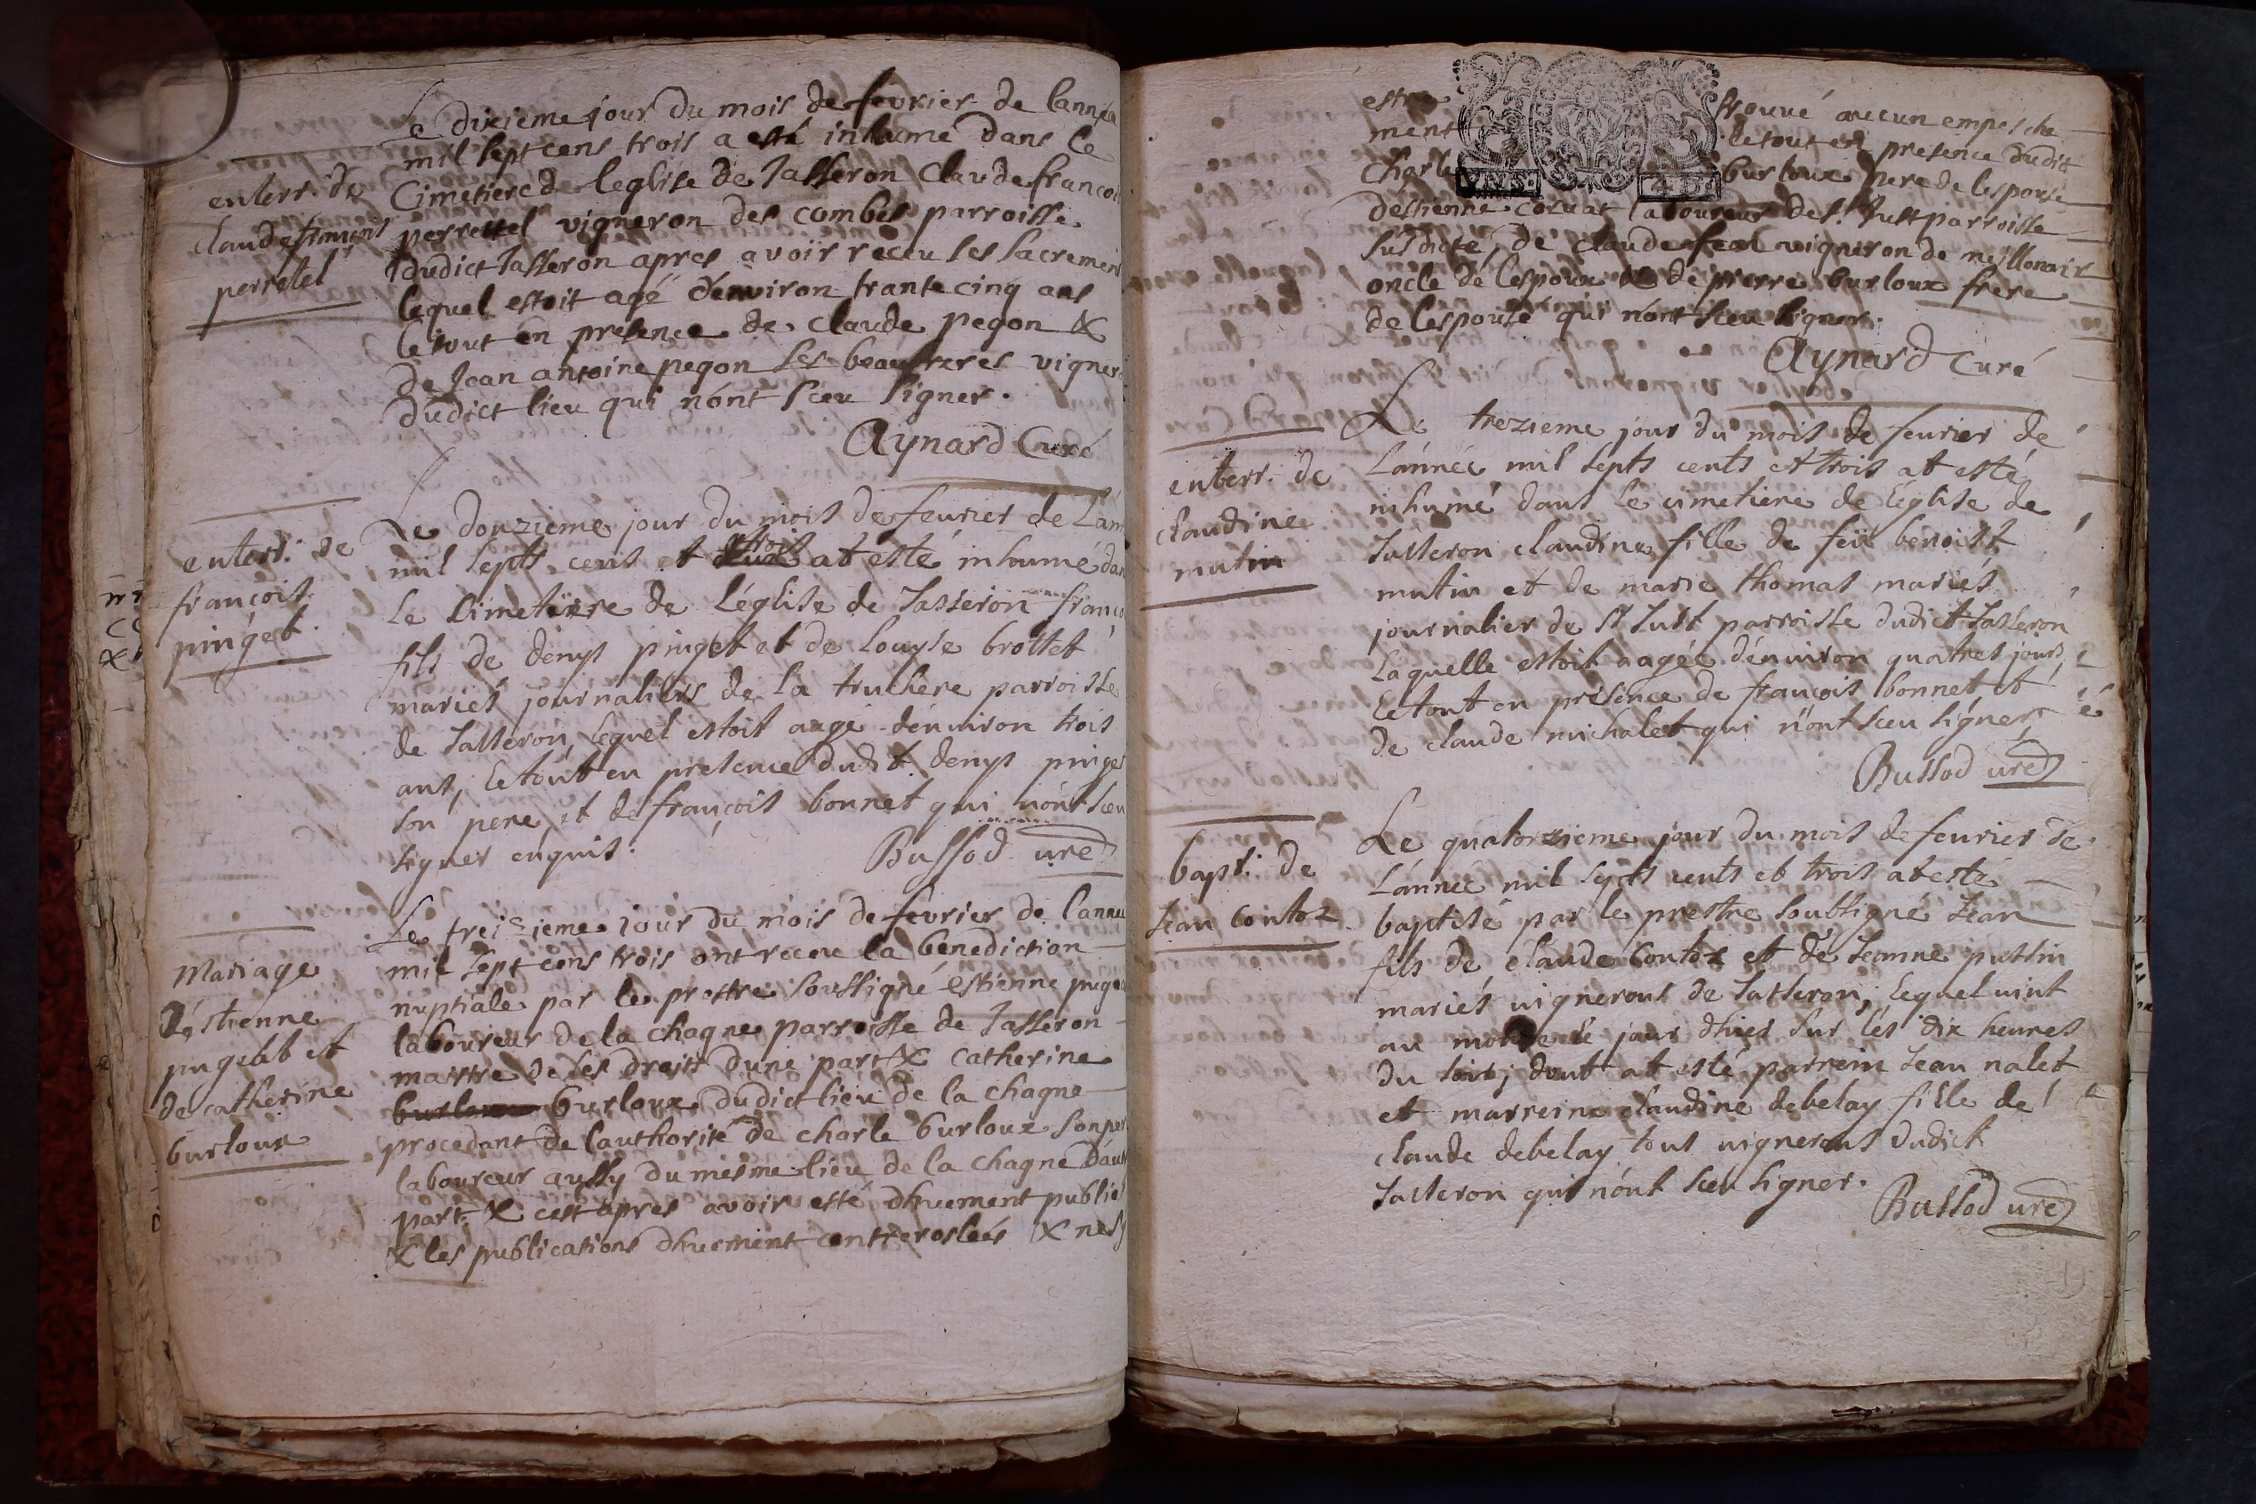 enterr. de
claude françois
perretel
Le dixieme jour du mois de fevrier de lannéa
mil sept cens trois a esté inhumé dans le
Cimetiere de leglise de Jasseron Claude francoi
perrettel vigneron des combes parroisse
dudict Jasseron apres avoir receu ses sacremen
lequel estoit agé denviron trante cinq ans
le tout en presence de claude pegon &
de Jean antoine pegon ses beaufreres vigner
dudict lieu qui nont sceu signer.
Aynard Curé
enterr. de
françois
pinget
Le douzieme jour du mois de feurier de L'an
mil septs cens et trois at esté inhumé dan
Le Cimetiere de L'église de Jasseron franço
fils de denys pinget et de Louyse brottet
mariés journaliers de la truchere parroisse
de Jasseron, lequel estoit aagé denuiron trois
ans, Le tout en presence dudt. denys pinget
son pere, et de françois bonnet qui n'ont sceu
signer enquis.
Bussod vire
mariage
déstienne
pugeat et
de catherine
burloux
Le treizieme jour du mois de fevrier de lannee
mil sept cens trois ont receu la benediction
nuptiale par le prestre soussigné estienne
laboureur de la chagne parroisse de Jasseron
maitre de ses droits dune part & catherine
burloux dudict lieu de la chagne
procedant de lauthorité de charle burloux son per
laboureur aussy du mesme lieu de la chagne dáut
part & cest apres avoir esté dhuement publies
& les publications dhuement controrolées & nes
estre trouvé aucun empesche
ment le tout en presence dudict
charle burloux pere de lespouse
destienne laboureur de st. Just parroisse
susdicte, de claude vigneron de
oncle de lespoux & de pierre burloux frere
de lespouse qui nont sceu signer.
Aynard Curé
enterr. de
claudine
mutin
Le trezieme jour du mois de feurier de
L'année mil septs cents et trois at esté
inhumé dans le cimetiere de l'église de
Jasseron claudine fille de feü benoist
mutin et de marie thomas mariés
journalier de st Just parroisse dudict Jasseron
Laquelle estoit aagée denuiron quatres jours,
Le tout en présence de françois bonnet, et
de claude michalet qui n'ont sceu signer,
Bussod vire
bapt. de
Jean Contoz
Le quatorzieme jour du mois de feurier de
L'année mil septs cents et trois at esté
baptisé par le prestre soubsigné Jean
fils de claude Contoz et de Jeanne putsin
mariés uignerons de Jasseron, lequel uint
au monde le jour dhier sur les dix heures
du soir, dont at esté parrein Jean nalet
et marreine claudine debelay fille de
claude debelay tous uignerons dudict
Jasseron qui n'ont sceu signer.
Bussod vire